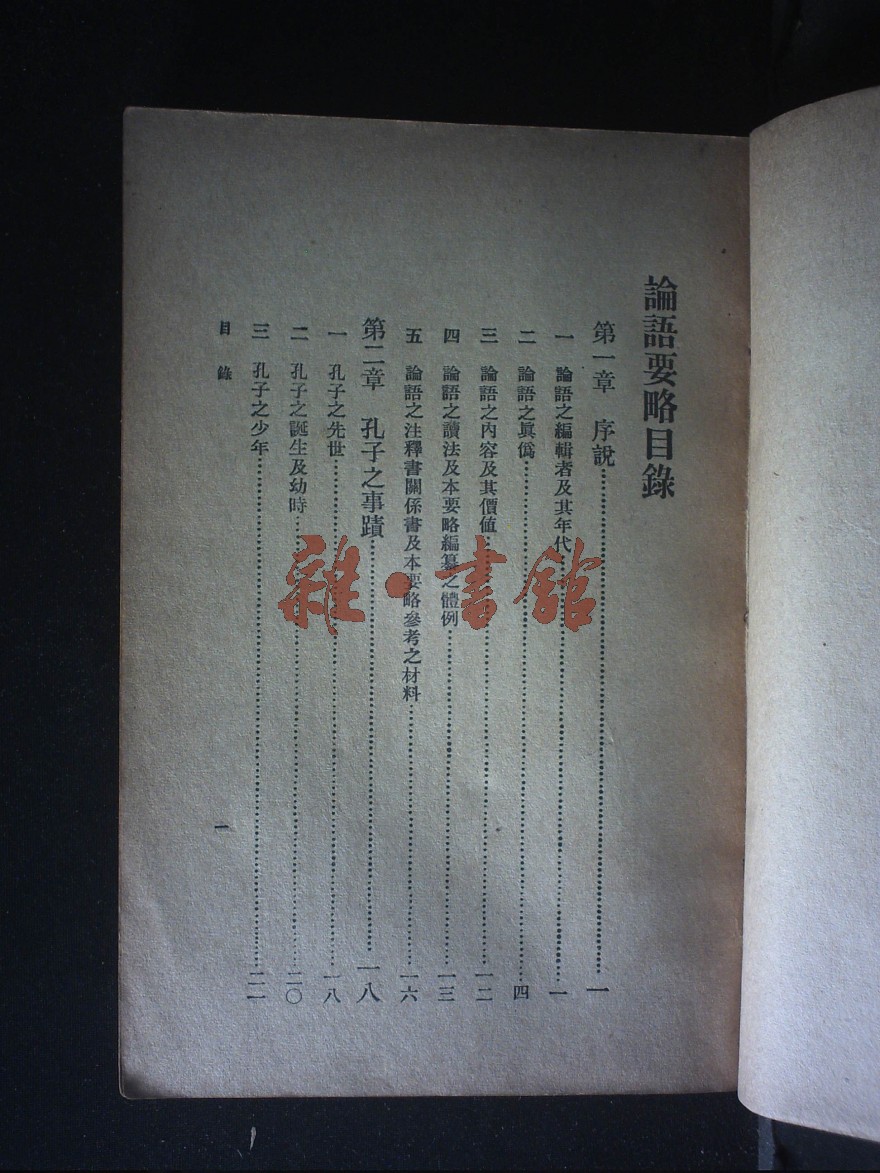 論語要略目錄
第一章 序說……一
一 論語之編輯者及其年代……一
二 論語之眞僞……四
三 論語之內容及其價値……一二
四 論語之讀法及本要略編纂之體例……一三
五 論語之注釋書關係書及本要略參考之材料……一六
第二章 孔子之事蹟……一八
一 孔子之先世……一八
二 孔子之誕生及幼時……二〇
三 孔子之少年……二二
目錄
一
雜·書館